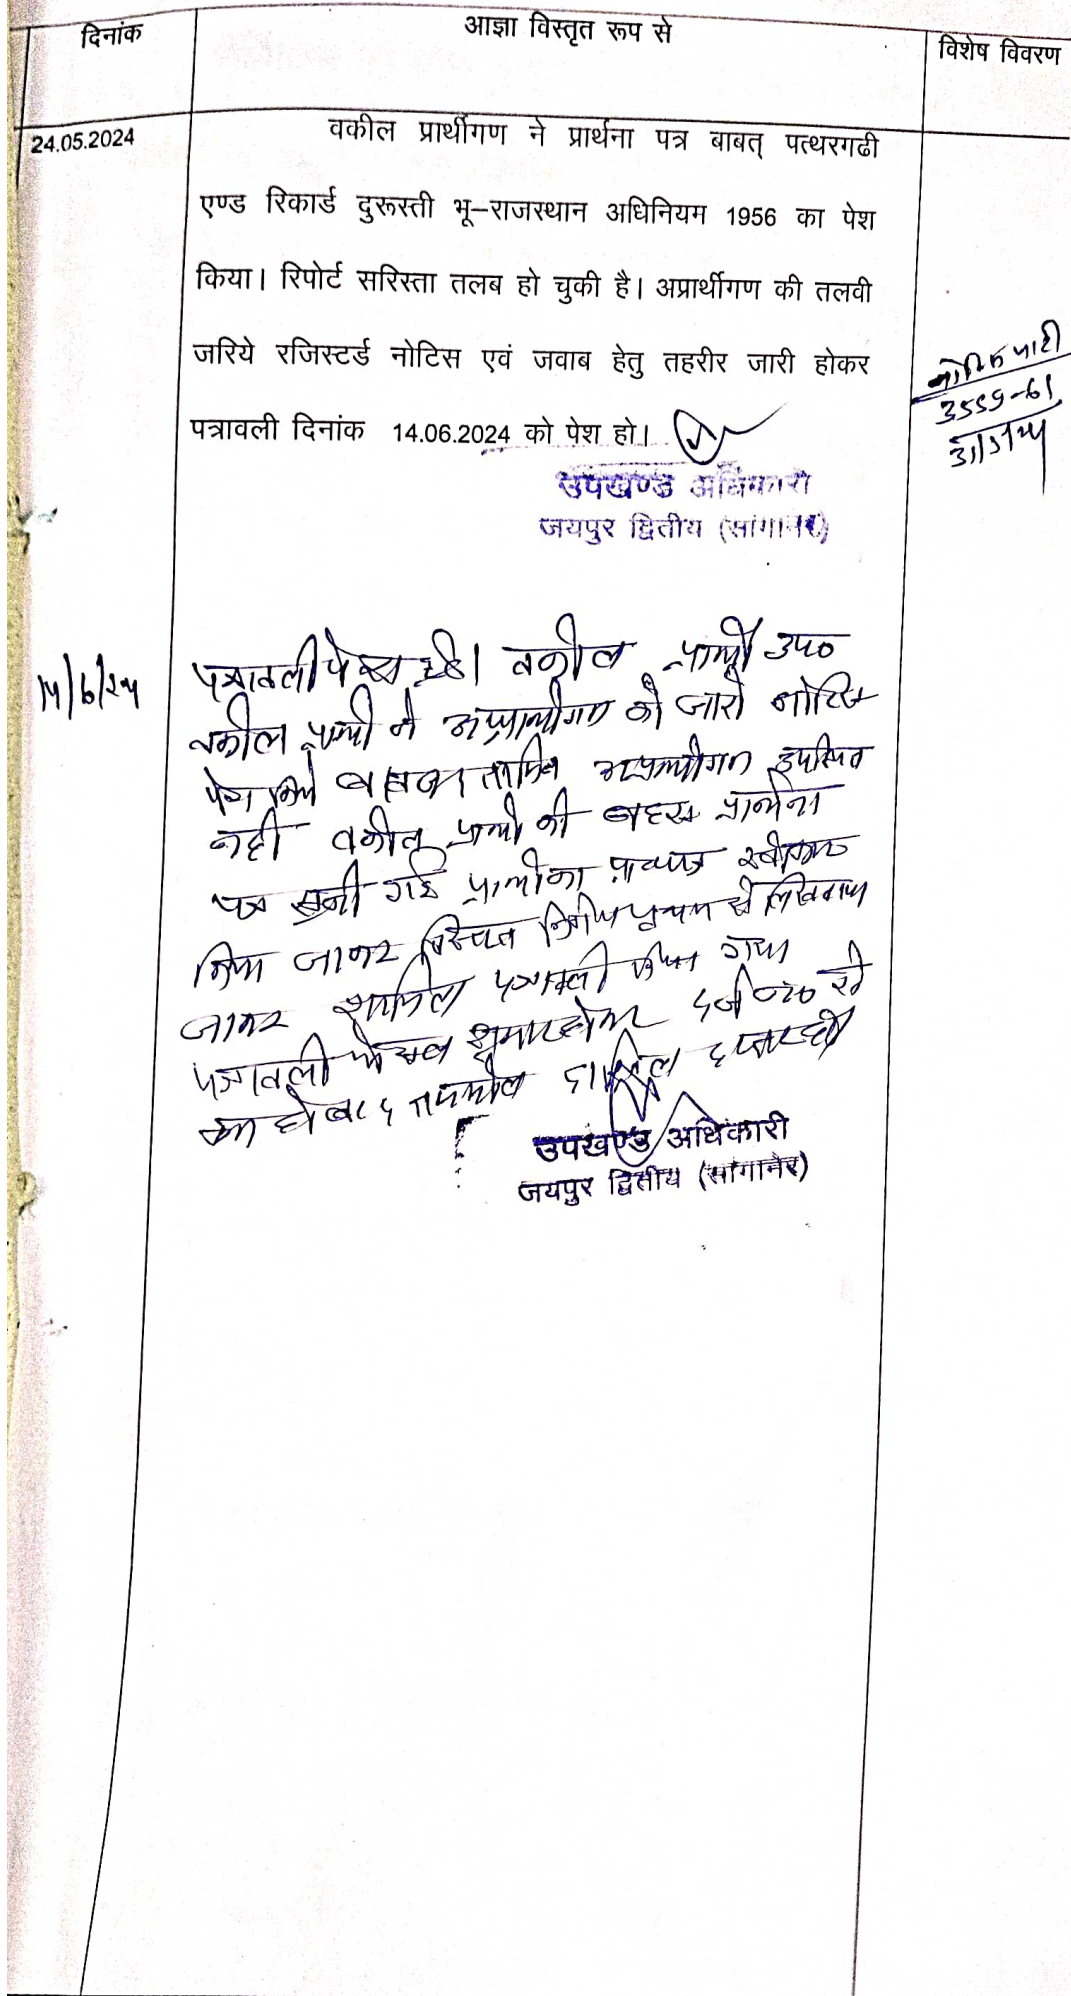 दिनांक
आज्ञा विस्तृत रूप से
विशेष विवरण
24.05.2024
वकील प्रार्थीगण ने प्रार्थना पत्र बाबत् पत्थरगढी
एण्ड रिकार्ड दुरूस्ती भू–राजस्थान अधिनियम 1956 का पेश
किया। रिपोर्ट सरिस्ता तलब हो चुकी है। अप्रार्थीगण की तलवी
जरिये रजिस्टर्ड नोटिस एवं जवाब हेतु तहरीर जारी होकर
पत्रावली दिनांक 14.06.2024 को पेश हो।
3559-61
उपखण्ड अधिकारी
जयपुर द्वितीय (सांगानेर)
14/6/24
पत्रावली पेश हुई। वकील प्रार्थी उप०
वकील प्रार्थी ने अप्रार्थीगण को जारी नोटिस
पेश किये तामिल अप्रार्थीगण उपस्थित
नही वकील प्रार्थी की बहस प्रार्थना
पत्र सुनी गई प्रार्थी का स्वीकार
किया जाकर विस्तृत निर्णय पृथक से लिखवाया
जाकर शामिल पत्रावली किया गया
पत्रावली फैसल शुमार होकर दर्ज न० से
कम हो बाद तकमील दाखिल दफ्तर हो
उपखण्ड अधिकारी
जयपुर द्वितीय (सांगानेर)